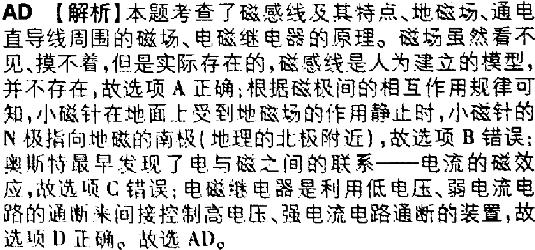 AD 【解析】本题考查了磁感线及其特点、地磁场、通电
直导线周围的磁场、电磁继电器的原理。磁场虽然看不
见、摸不着,但是实际存在的,磁感线是人为建立的模型,
并不存在,故选项 A 正确;根据磁极间的相互作用规律可
知,小磁针在地面上受到地磁场的作用静止时,小磁针的
N 极指向地磁的南极(地理的北极附近),故选项 B 错误;
奥斯特最早发现了电与磁之间的联系——电流的磁效
应,故选项 C 错误;电磁继电器是利用低电压、弱电流电
路的通断来间接控制高电压、强电流电路通断的装置,故
选项 D 正确。故选 AD。